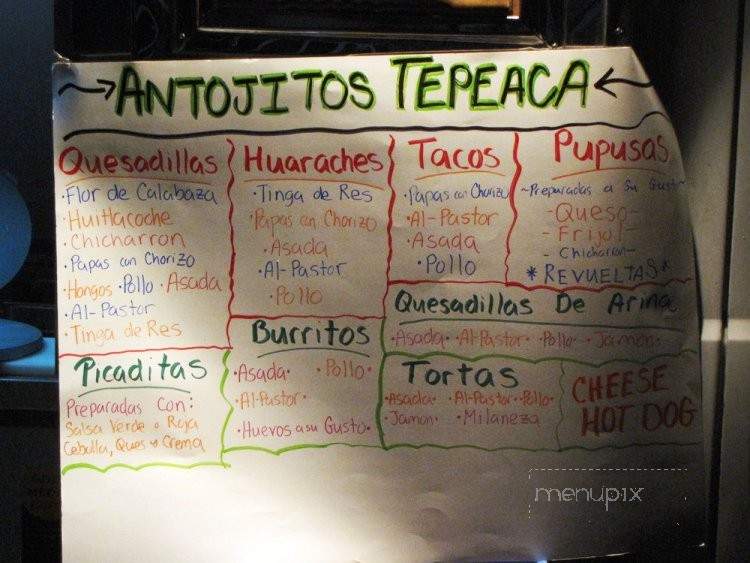 ANTOJITOS TEPEACA
Quesadillas
·Flor de Calabaza
·Huitlacoche
·Chicharron
·Papas con Chorizo
·Hongos ·Pollo ·Asada
·Al-Pastor
·Tinga de Res
Huaraches
·Tinga de Res
·Papas con Chorizo
·Asada
·Al-Pastor
·Pollo
Tacos
·Papas con Chorizo
·Al-Pastor
·Asada
·Pollo
Pupusas
~Preparadas a Su Gusto~
-Queso-
-Frijol-
-Chicharron-
*REVUELTAS*
Quesadillas De Arina
·Asada ·Al-Pastor ·Pollo ·Jamon·
Picaditas
Preparadas con:
Salsa Verde o Roja
Cebolla, Ques y Crema
Burritos
·Asada· Pollo·
·Al-Pastor·
·Huevos a su Gusto·
Tortas
·Asada· ·Al-Pastor· ·Pollo·
·Jamon· ·Milaneza
CHEESE
HOT DOG
menupix